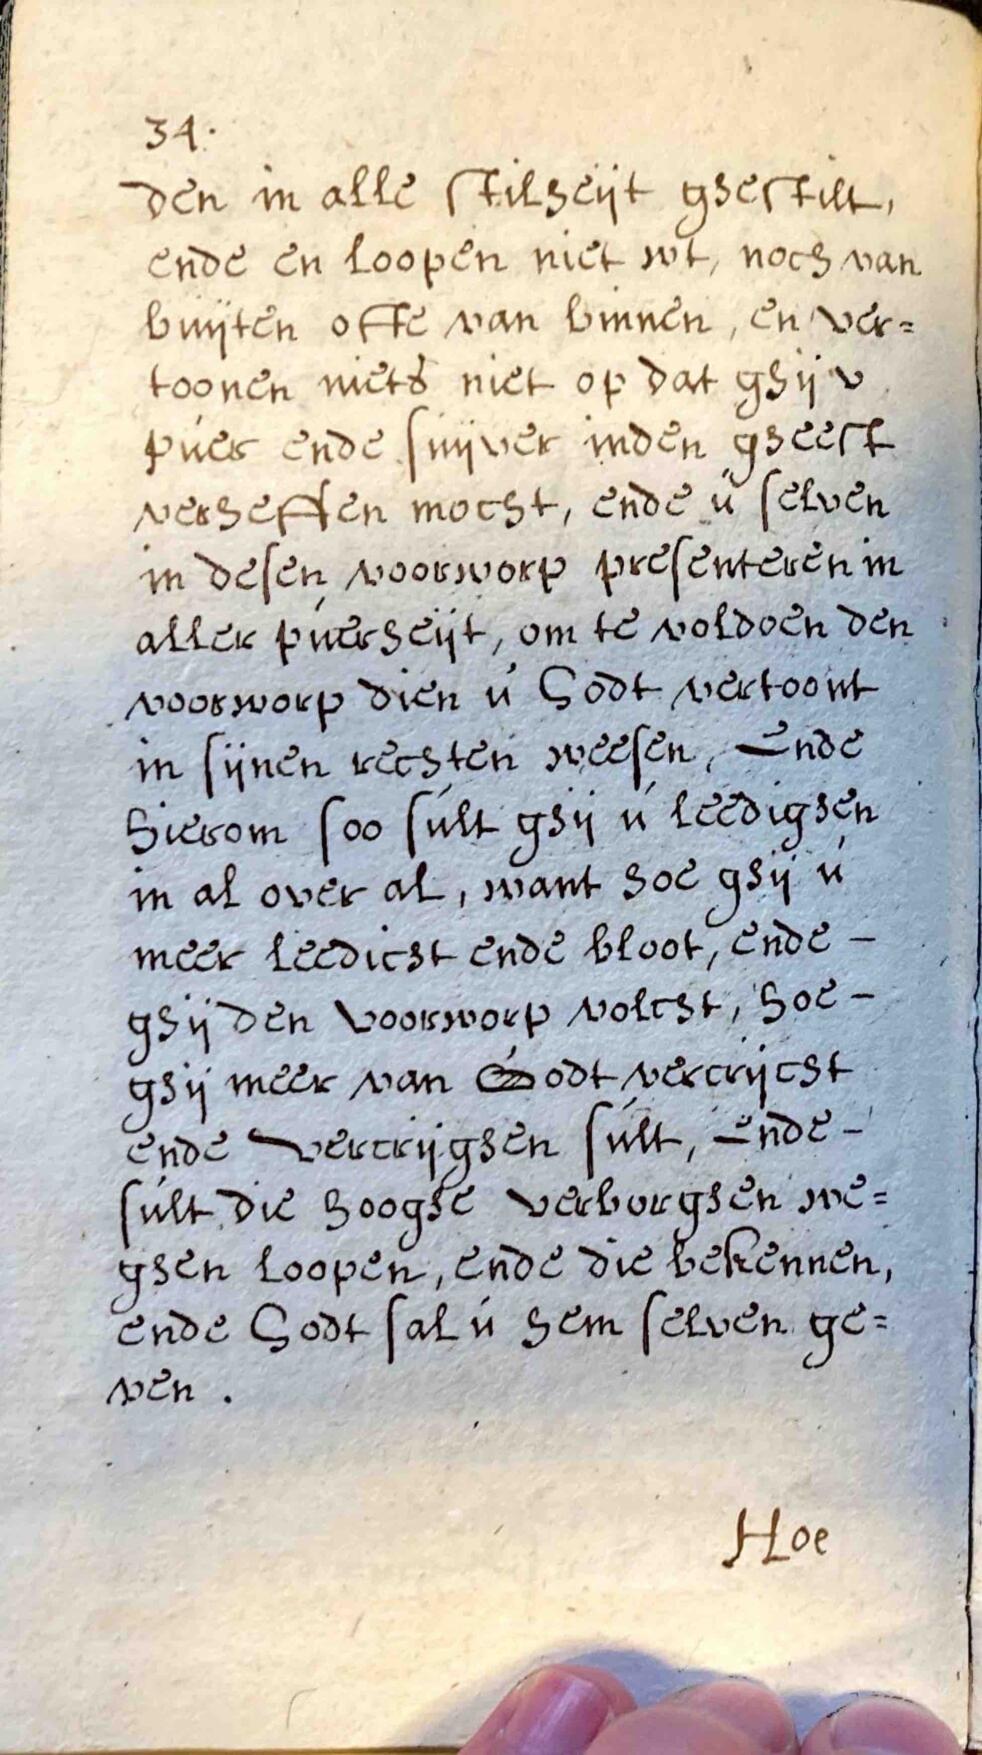 34.
den in alle stilheijt ghestilt,
ende en loopen niet wt, noch van
buijten offe van binnen, en ver=
toonen niets niet op dat ghij v
púer ende suijver inden gheest
verheffen mocht, ende ú selven
in desen voorworp presenteren in
aller púerheijt, om te voldoen den
voorworp dien ú Godt vertoont
in sijnen rechten weesen, Ende
hierom soo súlt ghij ú leedighen
in al over al, want hoe ghij ú
meer leedicht ende bloot, ende -
ghij den voorworp volcht, hoe -
ghij meer van Godt vercrijcht
ende vercrijghen súlt, Ende -
súlt die hooghe verborghen we=
ghen loopen, ende die bekennen,
ende Godt sal ú hem selven ge=
ven .
Hoe